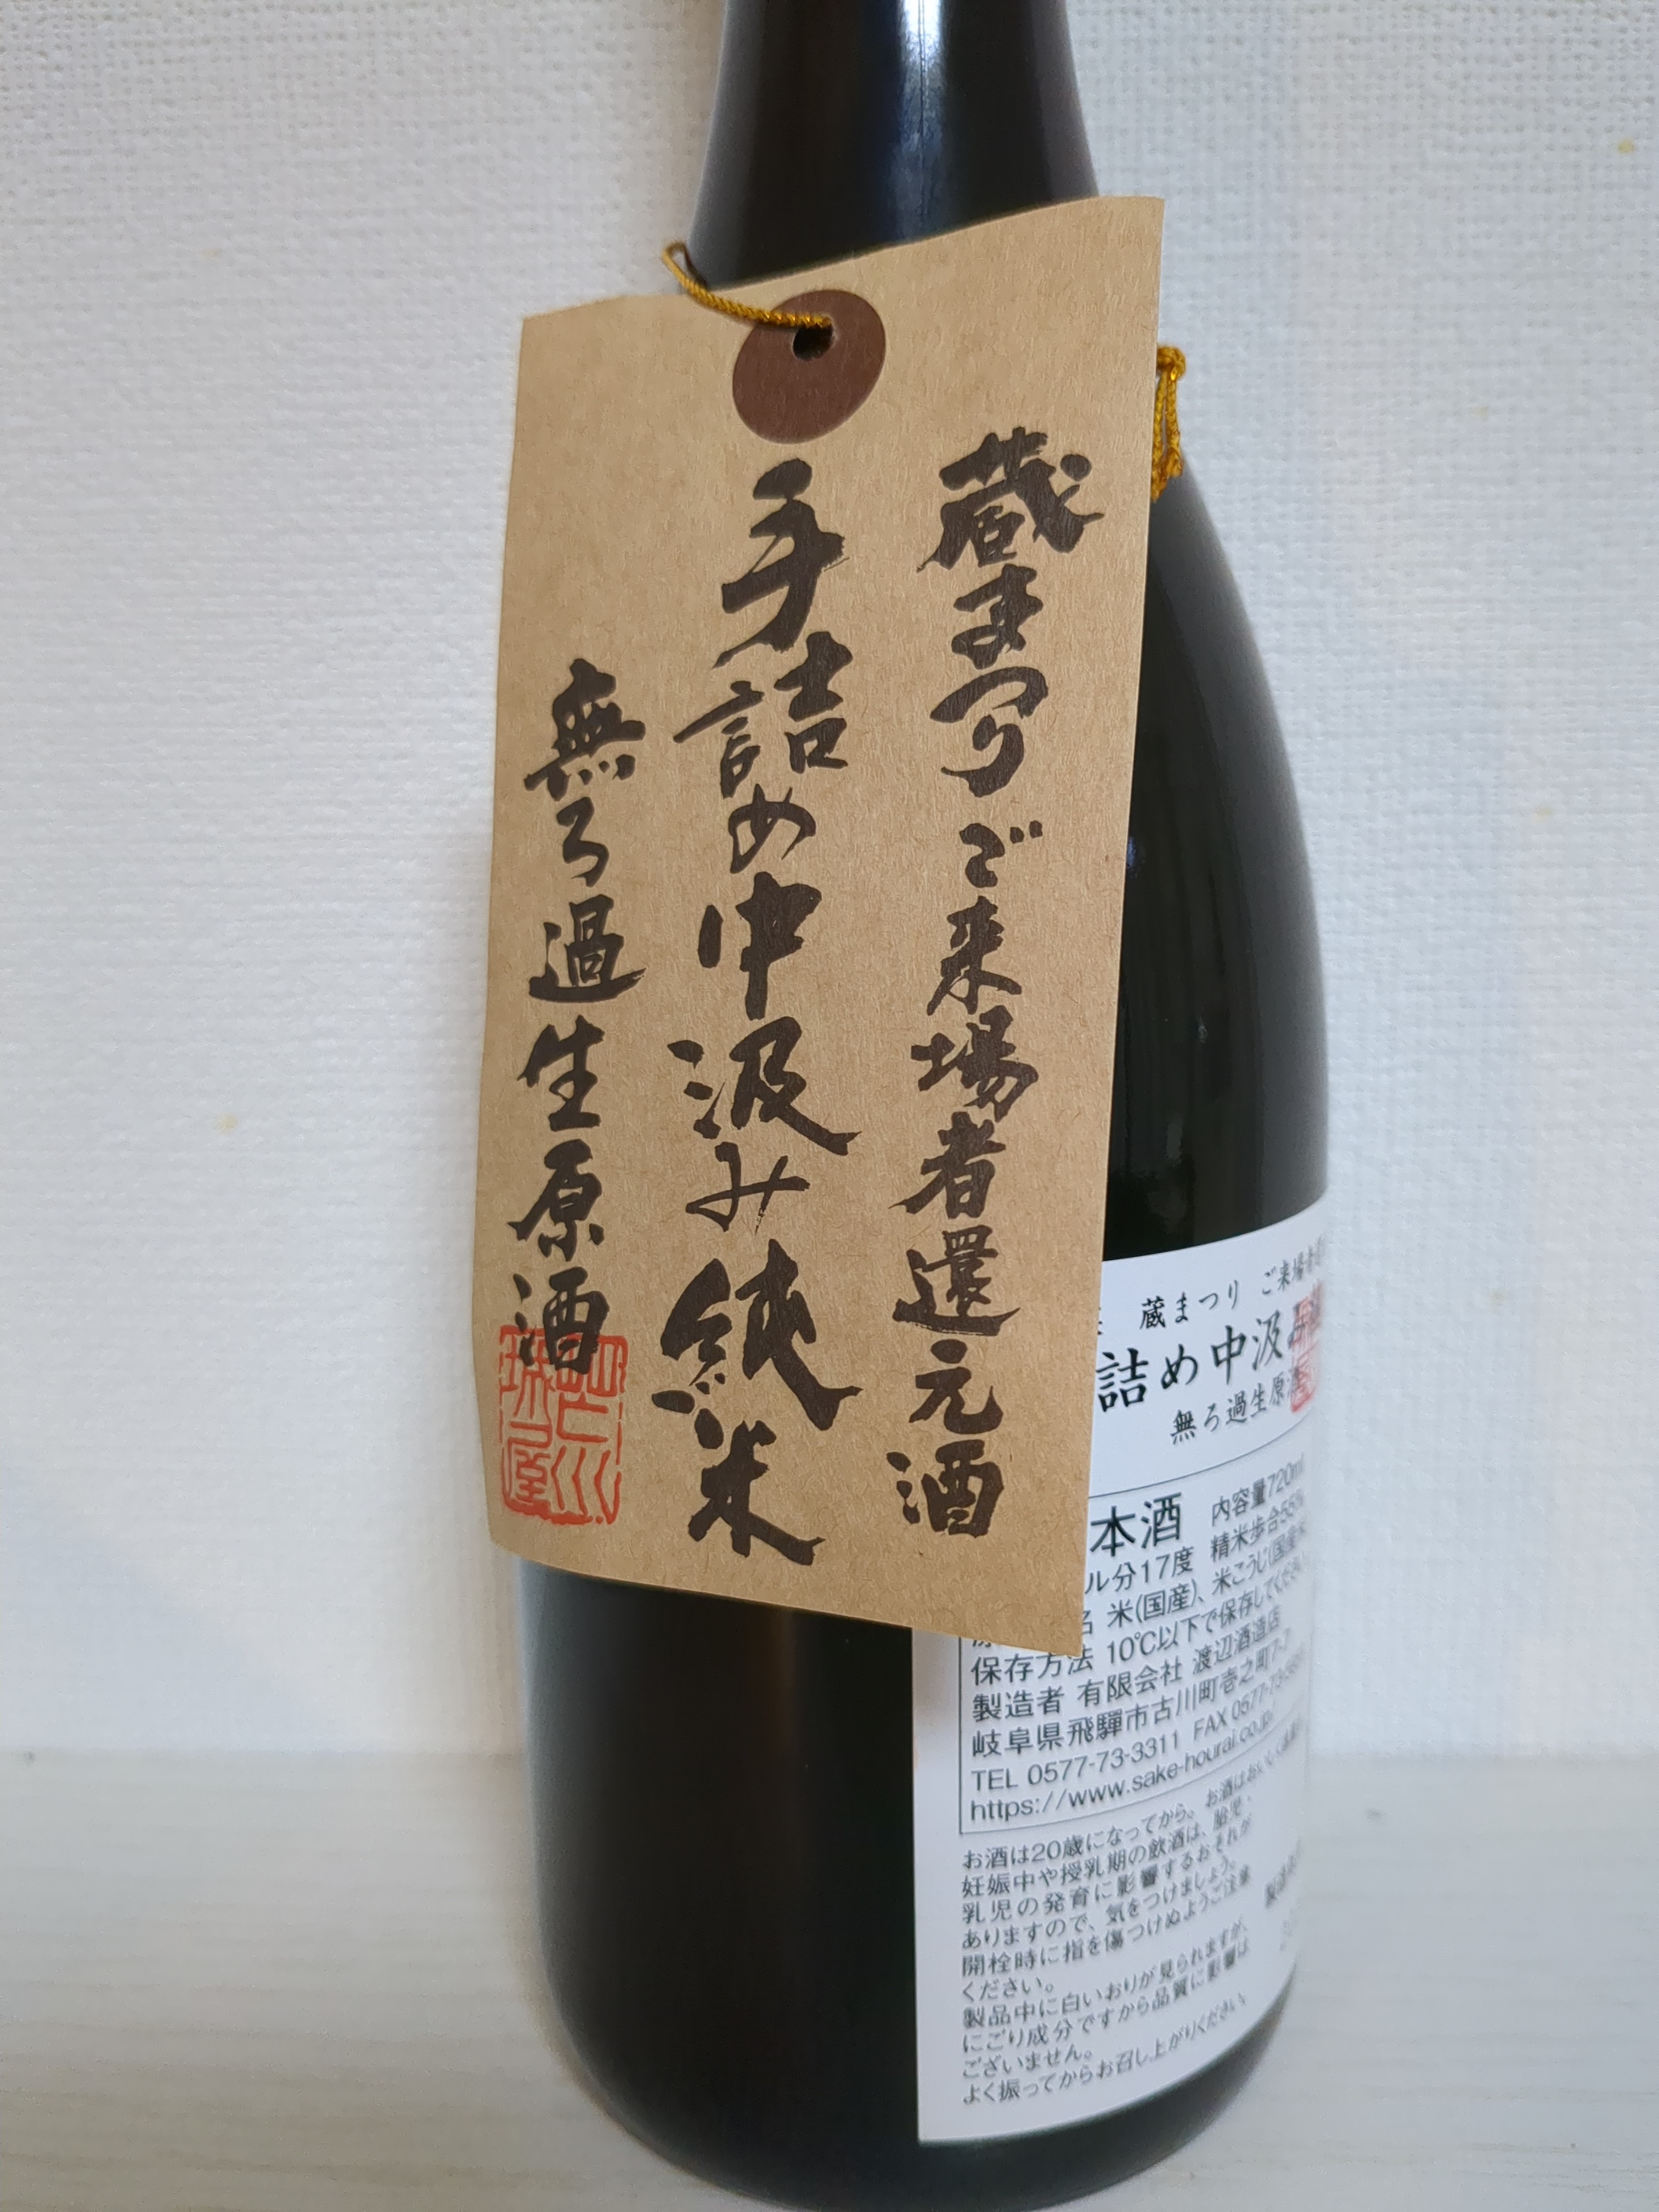 蔵まつり ご来場者還元酒
手詰め中汲み純米
無ろ過生原酒
蔵まつり ご来場者
詰め中汲み
無ろ過生原酒
本酒 内容量720ml
ル分17度 精米歩合55%
名 米(国産)、米こうじ(国産米)
保存方法 10℃以下で保存してください
製造者 有限会社 渡辺酒造店
岐阜県飛騨市古川町壱之町7-7
TEL 0577-73-3311 FAX 0577-73-
https://www.sake-hourai.co.jp
お酒は20歳になってから。お酒はおいしく
妊娠中や授乳期の飲酒は、胎児・
乳児の発育に影響するおそれが
ありますので、気をつけましょう。
開栓時に指を傷つけぬようご注意
ください。
製品中に白いおりが見られますが、
にごり成分ですから品質に影響は
ございません。
よく振ってからお召し上がりください。